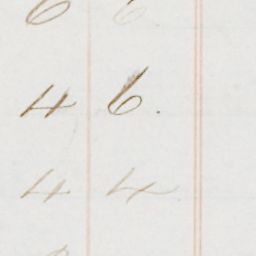 6 6
4 6.
4 4